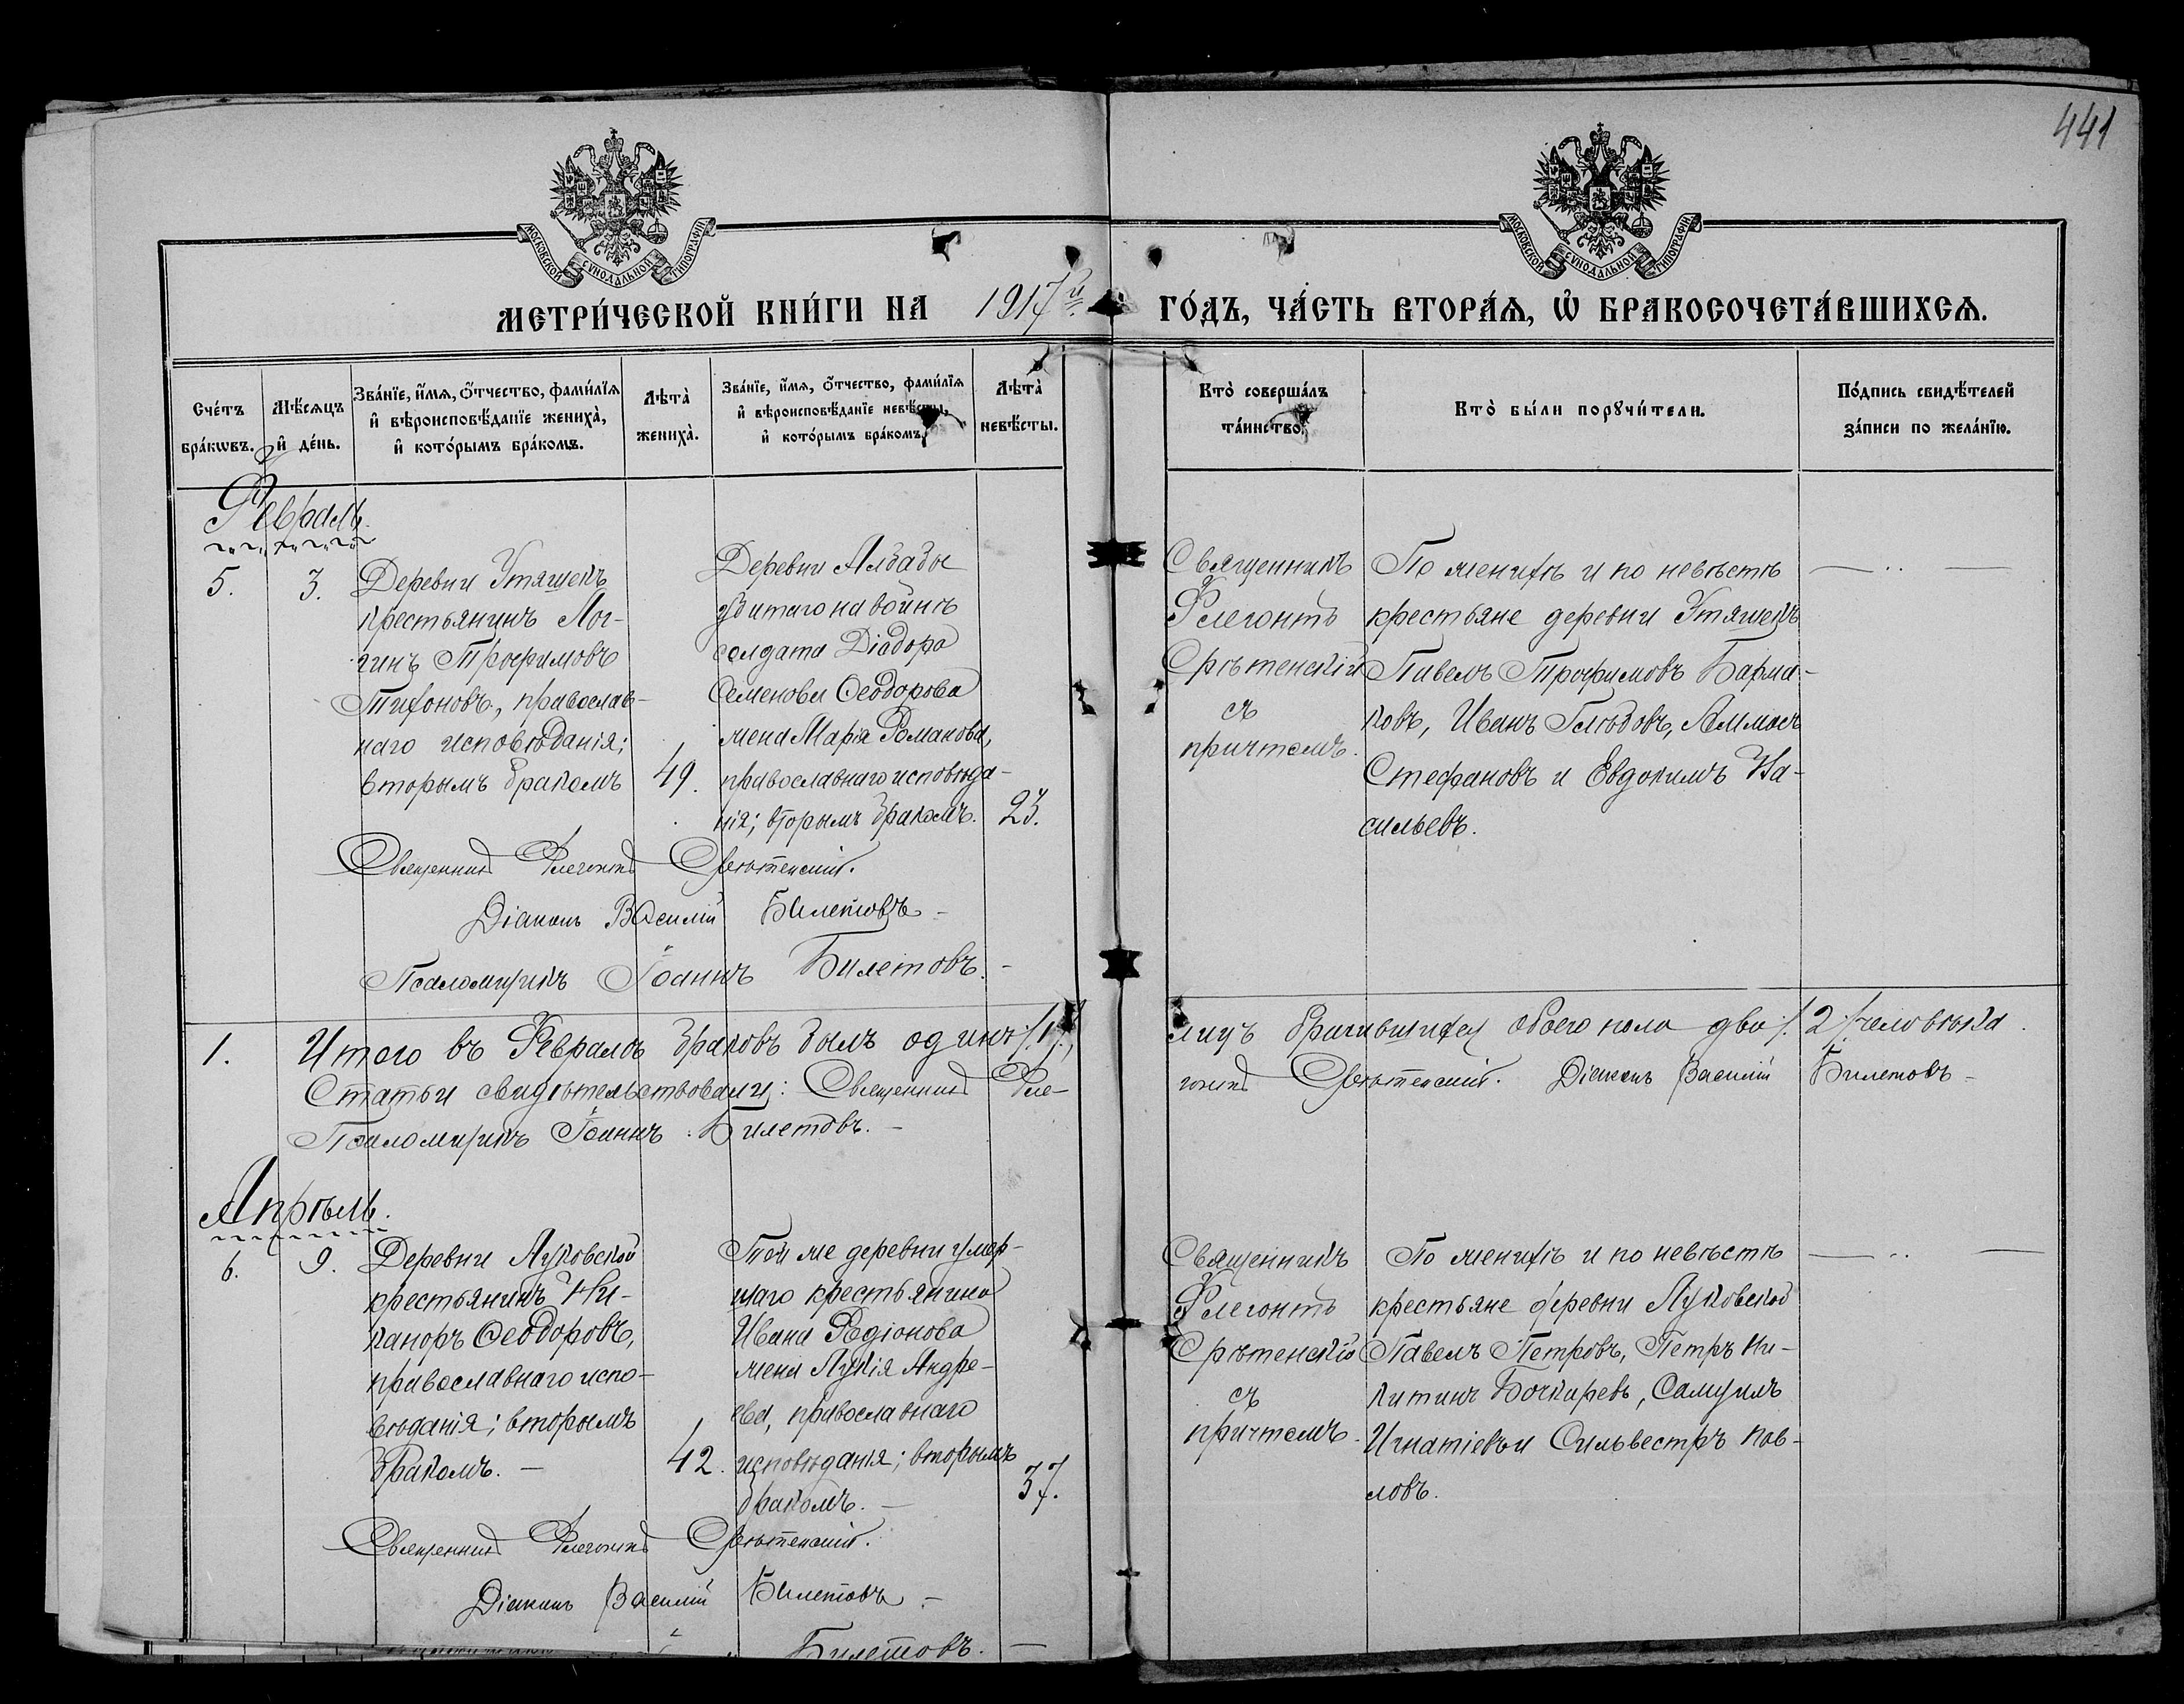 441
МОСКОВСКОЙ СѴНОДАЛЬНОЙ ТИПОГРАФІИ
МОСКОВСКОЙ СѴНОДАЛЬНОЙ ТИПОГРАФІИ
МЕТРИ́ЧЕСКОЙ КНИ́ГИ НА 1917й ГО́ДЪ, ЧА́СТЬ ВТОРА́Ѧ, Ѡ҆ БРАКОСОЧЕТА́ВШИХСѦ.
Сче́тъ бра́кѡвъ.
Мѣ́сѧцъ и҆ де́нь.
Зва́нїе, и҆́мѧ, ѻ҆́тчество, фами́лїѧ
и҆ вѣроисповѣ́данїе жениха̀,
и҆ кото́рымъ бра́комъ.
Лѣта̀ жениха̀.
Зва́нїе, и҆́мѧ, ѻ҆́тчество, фами́лїѧ
и҆ вѣроисповѣ́данїе невѣ́сты,
и҆ кото́рымъ бра́комъ.
Лѣта̀ невѣ́сты.
Кто̀ соверша́лъ
та́инство.
Кто̀ бы́ли порꙋчи́тели.
По́дпись свидѣ́телей
за́писи по жела́нїю.
Февраль.
5.
3.
Деревни Утяшекъ
крестьянинъ Лог-
гинъ Трофимовъ
Тихоновъ, православ-
наго исповѣданія;
вторымъ бракомъ
49.
Деревни
убитаго на войнѣ
солдата Діадора
Семенова Ѳеодорова
жена Марія Романова,
православнаго исповѣда-
нія; вторымъ бракомъ.
23.
Священникъ
Флегонтъ
Срѣтенскій
съ
причтомъ.
По женихѣ и по невѣстѣ
крестьяне деревни Утяшекъ
Павелъ Трофимовъ Барма-
ковъ, Иванъ
Стефановъ и Евдокимъ Ва-
сильевъ.
Священникъ Флегонтъ Срѣтенскій.
Діаконъ Василій Билетовъ
Псаломщикъ Іоаннъ Билетовъ.
1.
Итого въ Февралѣ браковъ былъ одинъ /1/, лицъ брачившихся обоего пола два /2/ человѣка.
Статьи свидѣтельствовали: Священникъ Фле-гонтъ Срѣтенскій. Діаконъ Василій Билетовъ
Псаломщикъ Іоаннъ Билетовъ.
Апрѣль.
6.
9.
Деревни Луковской
крестьянинъ Ни-
каноръ Ѳеодоровъ,
православнаго испо-
вѣданія; вторымъ
бракомъ.
42.
Той же деревни умер-
шаго крестьянина
Ивана Родіонова
жена Лукія Андре-
ева, православнаго
исповѣданія; вторымъ
бракомъ.
37.
Священникъ
Флегонтъ
Срѣтенскій
съ
причтомъ.
По женихѣ и по невѣстѣ
крестьяне деревни Луковской
Павелъ Петровъ, Петръ Ни-
китинъ Бочкаревъ, Самуилъ
Игнатіевъ и Сильвестръ Пав-
ловъ.
Священникъ Флегонтъ Срѣтенскій.
Діаконъ Василій Билетовъ
Билетовъ.